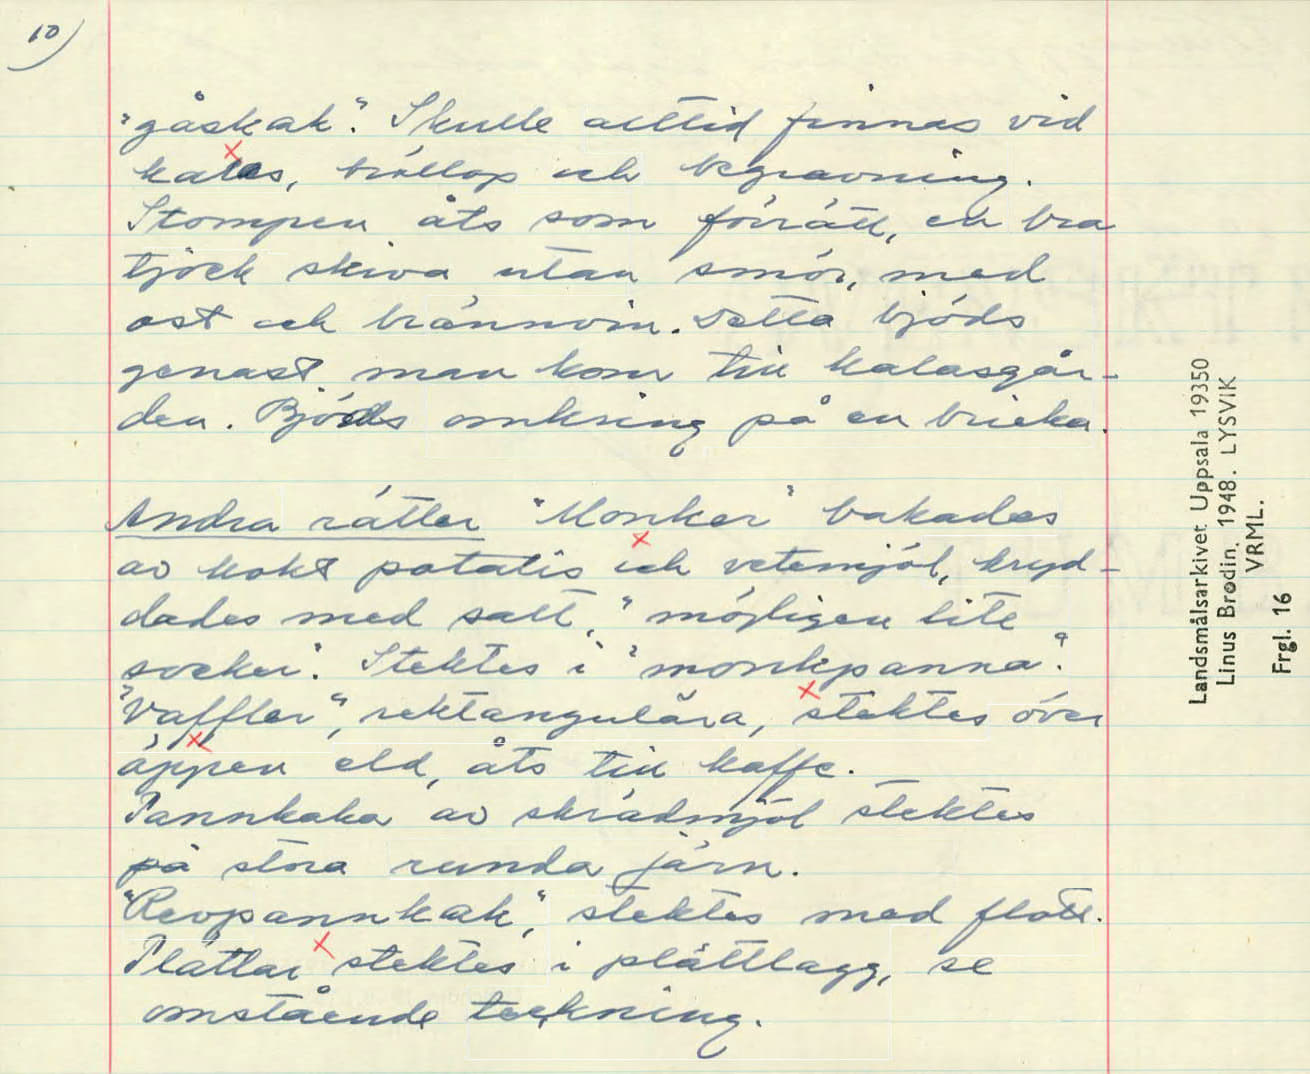 10)
"gåskak". Skulle alltid finnas vid
kalas, bröllop och begravning.
Stompen åts som förrätt, en bra
tjock skiva utan smör, med
ost och brännvin. Detta bjöds
genast man kom till kalasgår-
den. Bjöds omkring på en bricka.
Andra rätter "Monker" bakades
av kokt potatis och vetemjöl, kryd-
dades med salt, "möjligen lite
socker". Stektes i "monkpanna".
"Vaffler", rektangulära, stektes över
öppen eld, åts till kaffe.
Pannkaka av skrädmjöl stektes
på stora runda järn.
"Revpannkak", stektes med flott.
Plättar stektes i plättlagg, se
omstående teckning.
Landsmålsarkivet Uppsala 19350
Linus Brodin. 1948. LYSVIK
VRML.
Frgl. 16